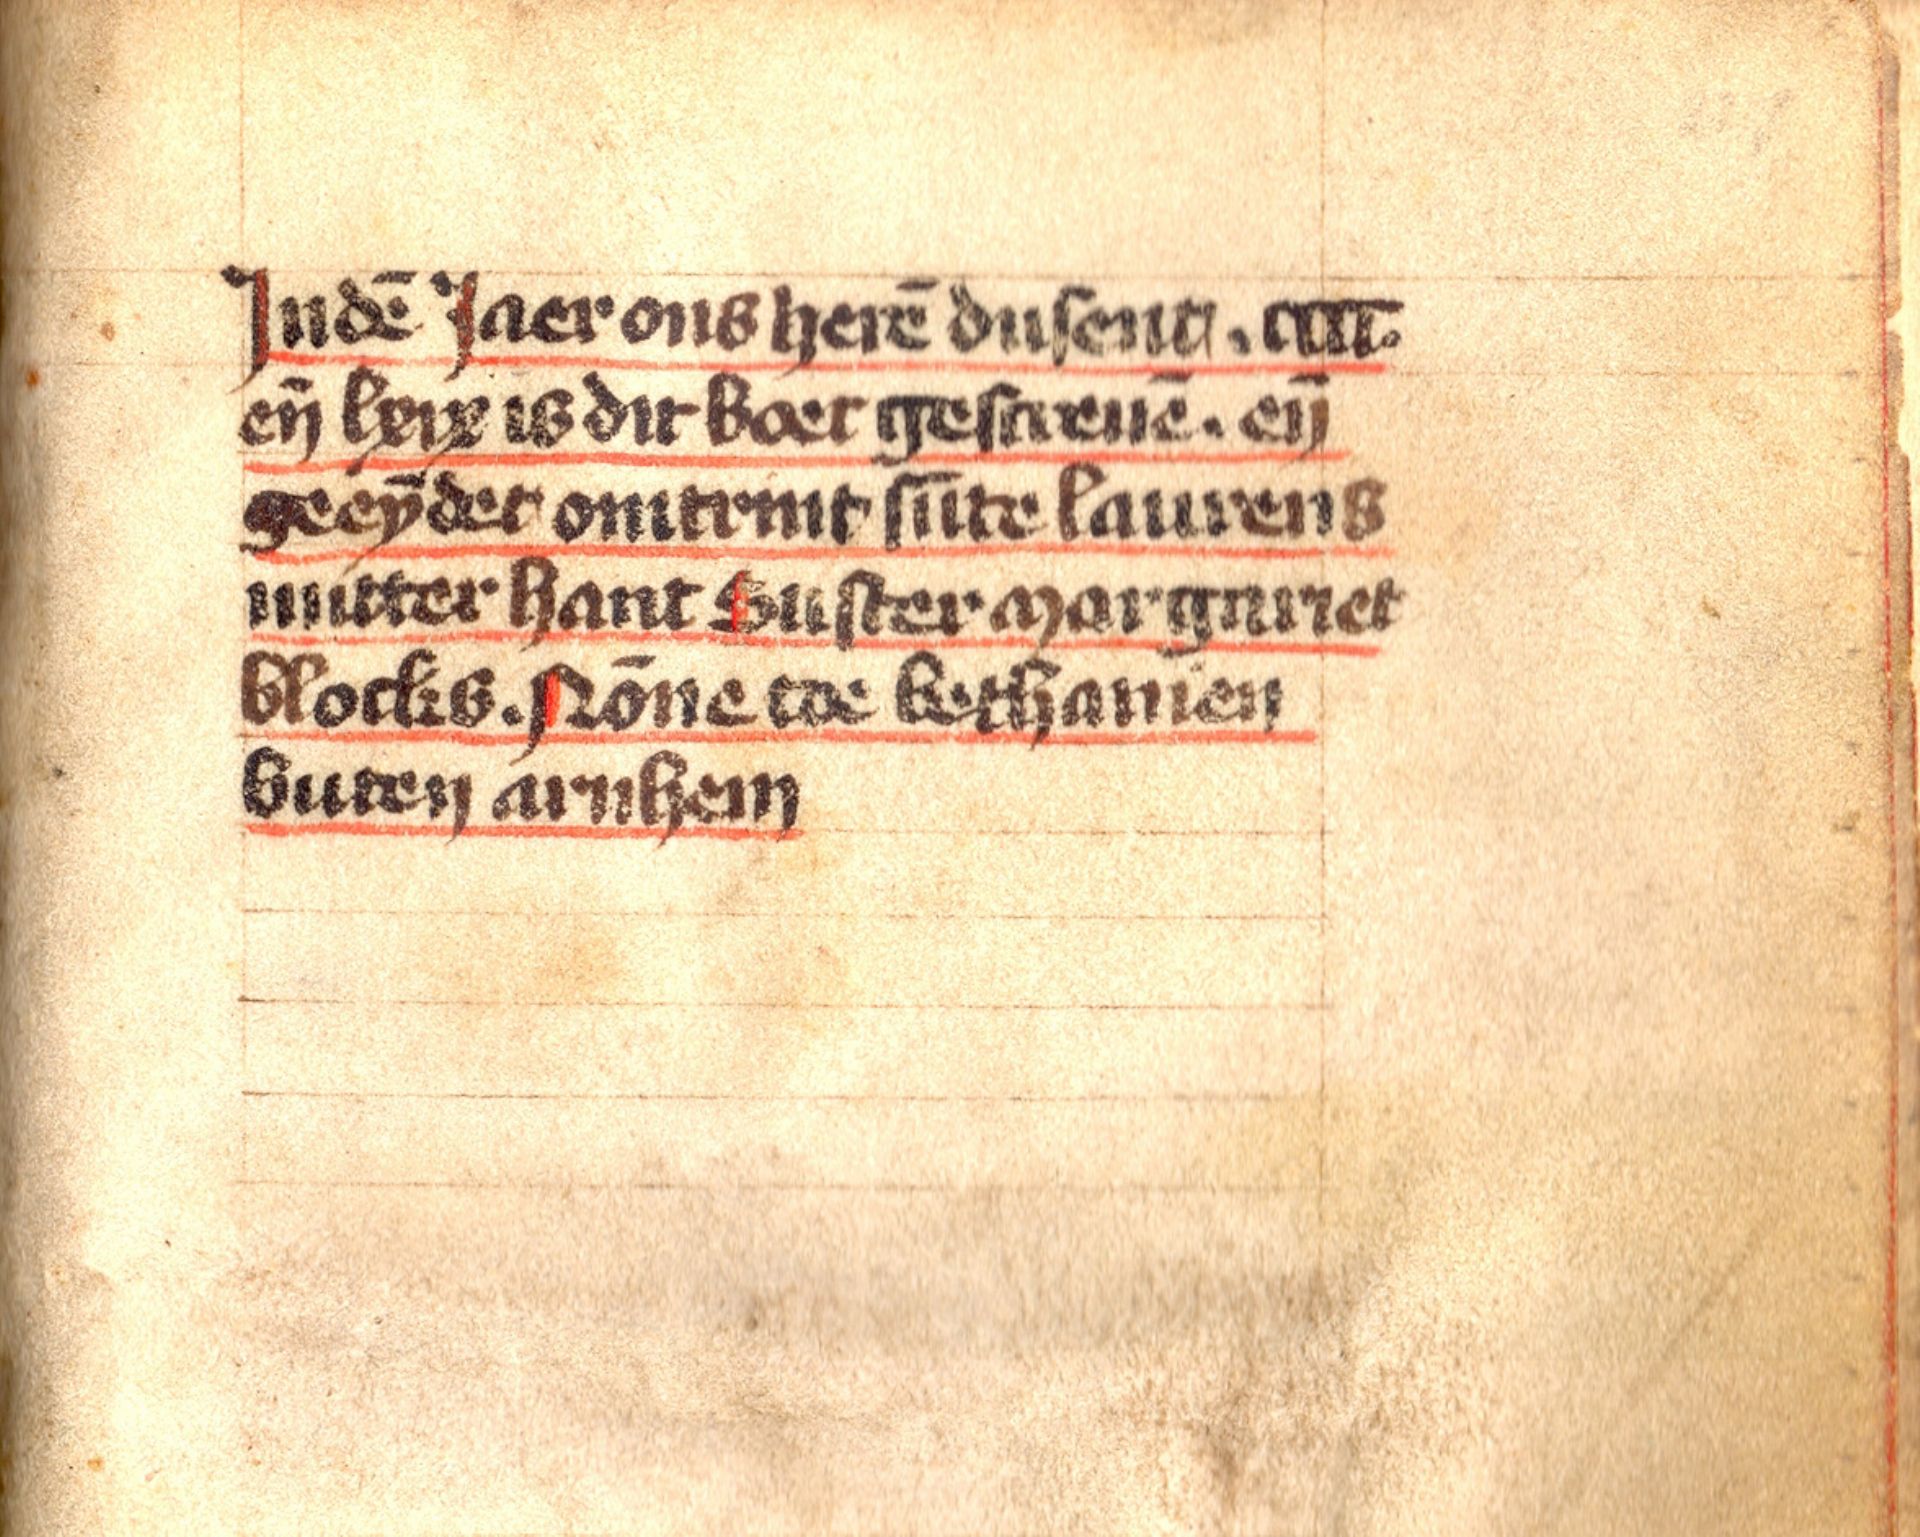 Jn dē Jaer ons herē dusent . cccc.
eñ lxix is dit boec gescreuē . eñ
geeȳdet omtrint sūte laurens
mitter hant Suster margariet
blocks . Nōne toe bethanien
buten arnhem